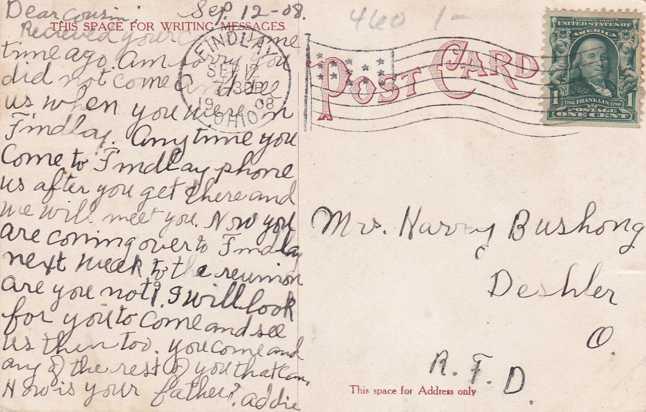 Dear cousin. Sep 12-08.
THIS SPACE FOR WRITING MESSAGES
Received your some
time ago. Am sorry you
did not come and see
us when you were in
Findlay. Any time you
come to Findlay phone
us after you get there and
we will meet you. Now you
are coming over to Findlay
next week to the reunion
are you not? I will look
for you to come and see
us then too. you come and
any of the rest of you that can.
How is your father? Addie
FINDLAY
SEP 12
830P
19 08
OHIO
460 1-
POST CARD
UNITED STATES OF
AMERICA
FRANKLIN
1 POSTAGE 1
ONE CENT
Mr. Harry Bushong
Deshler
O.
R.F.D.
This space for Address only